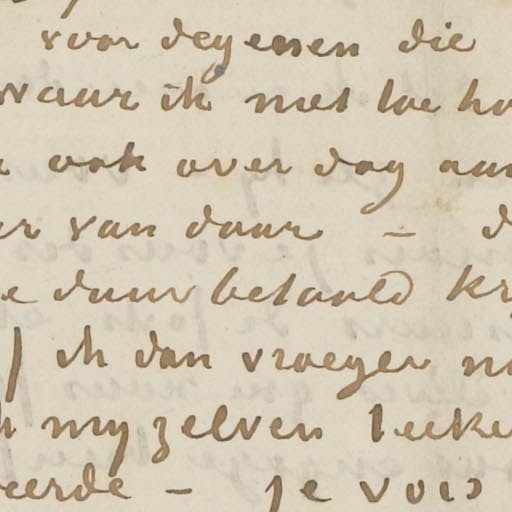 voor degenen die
waar ik met toe
ook over dag aan
er van daar –
e daar betaald
ik dan vroeger
myzelven
eerde – je vois